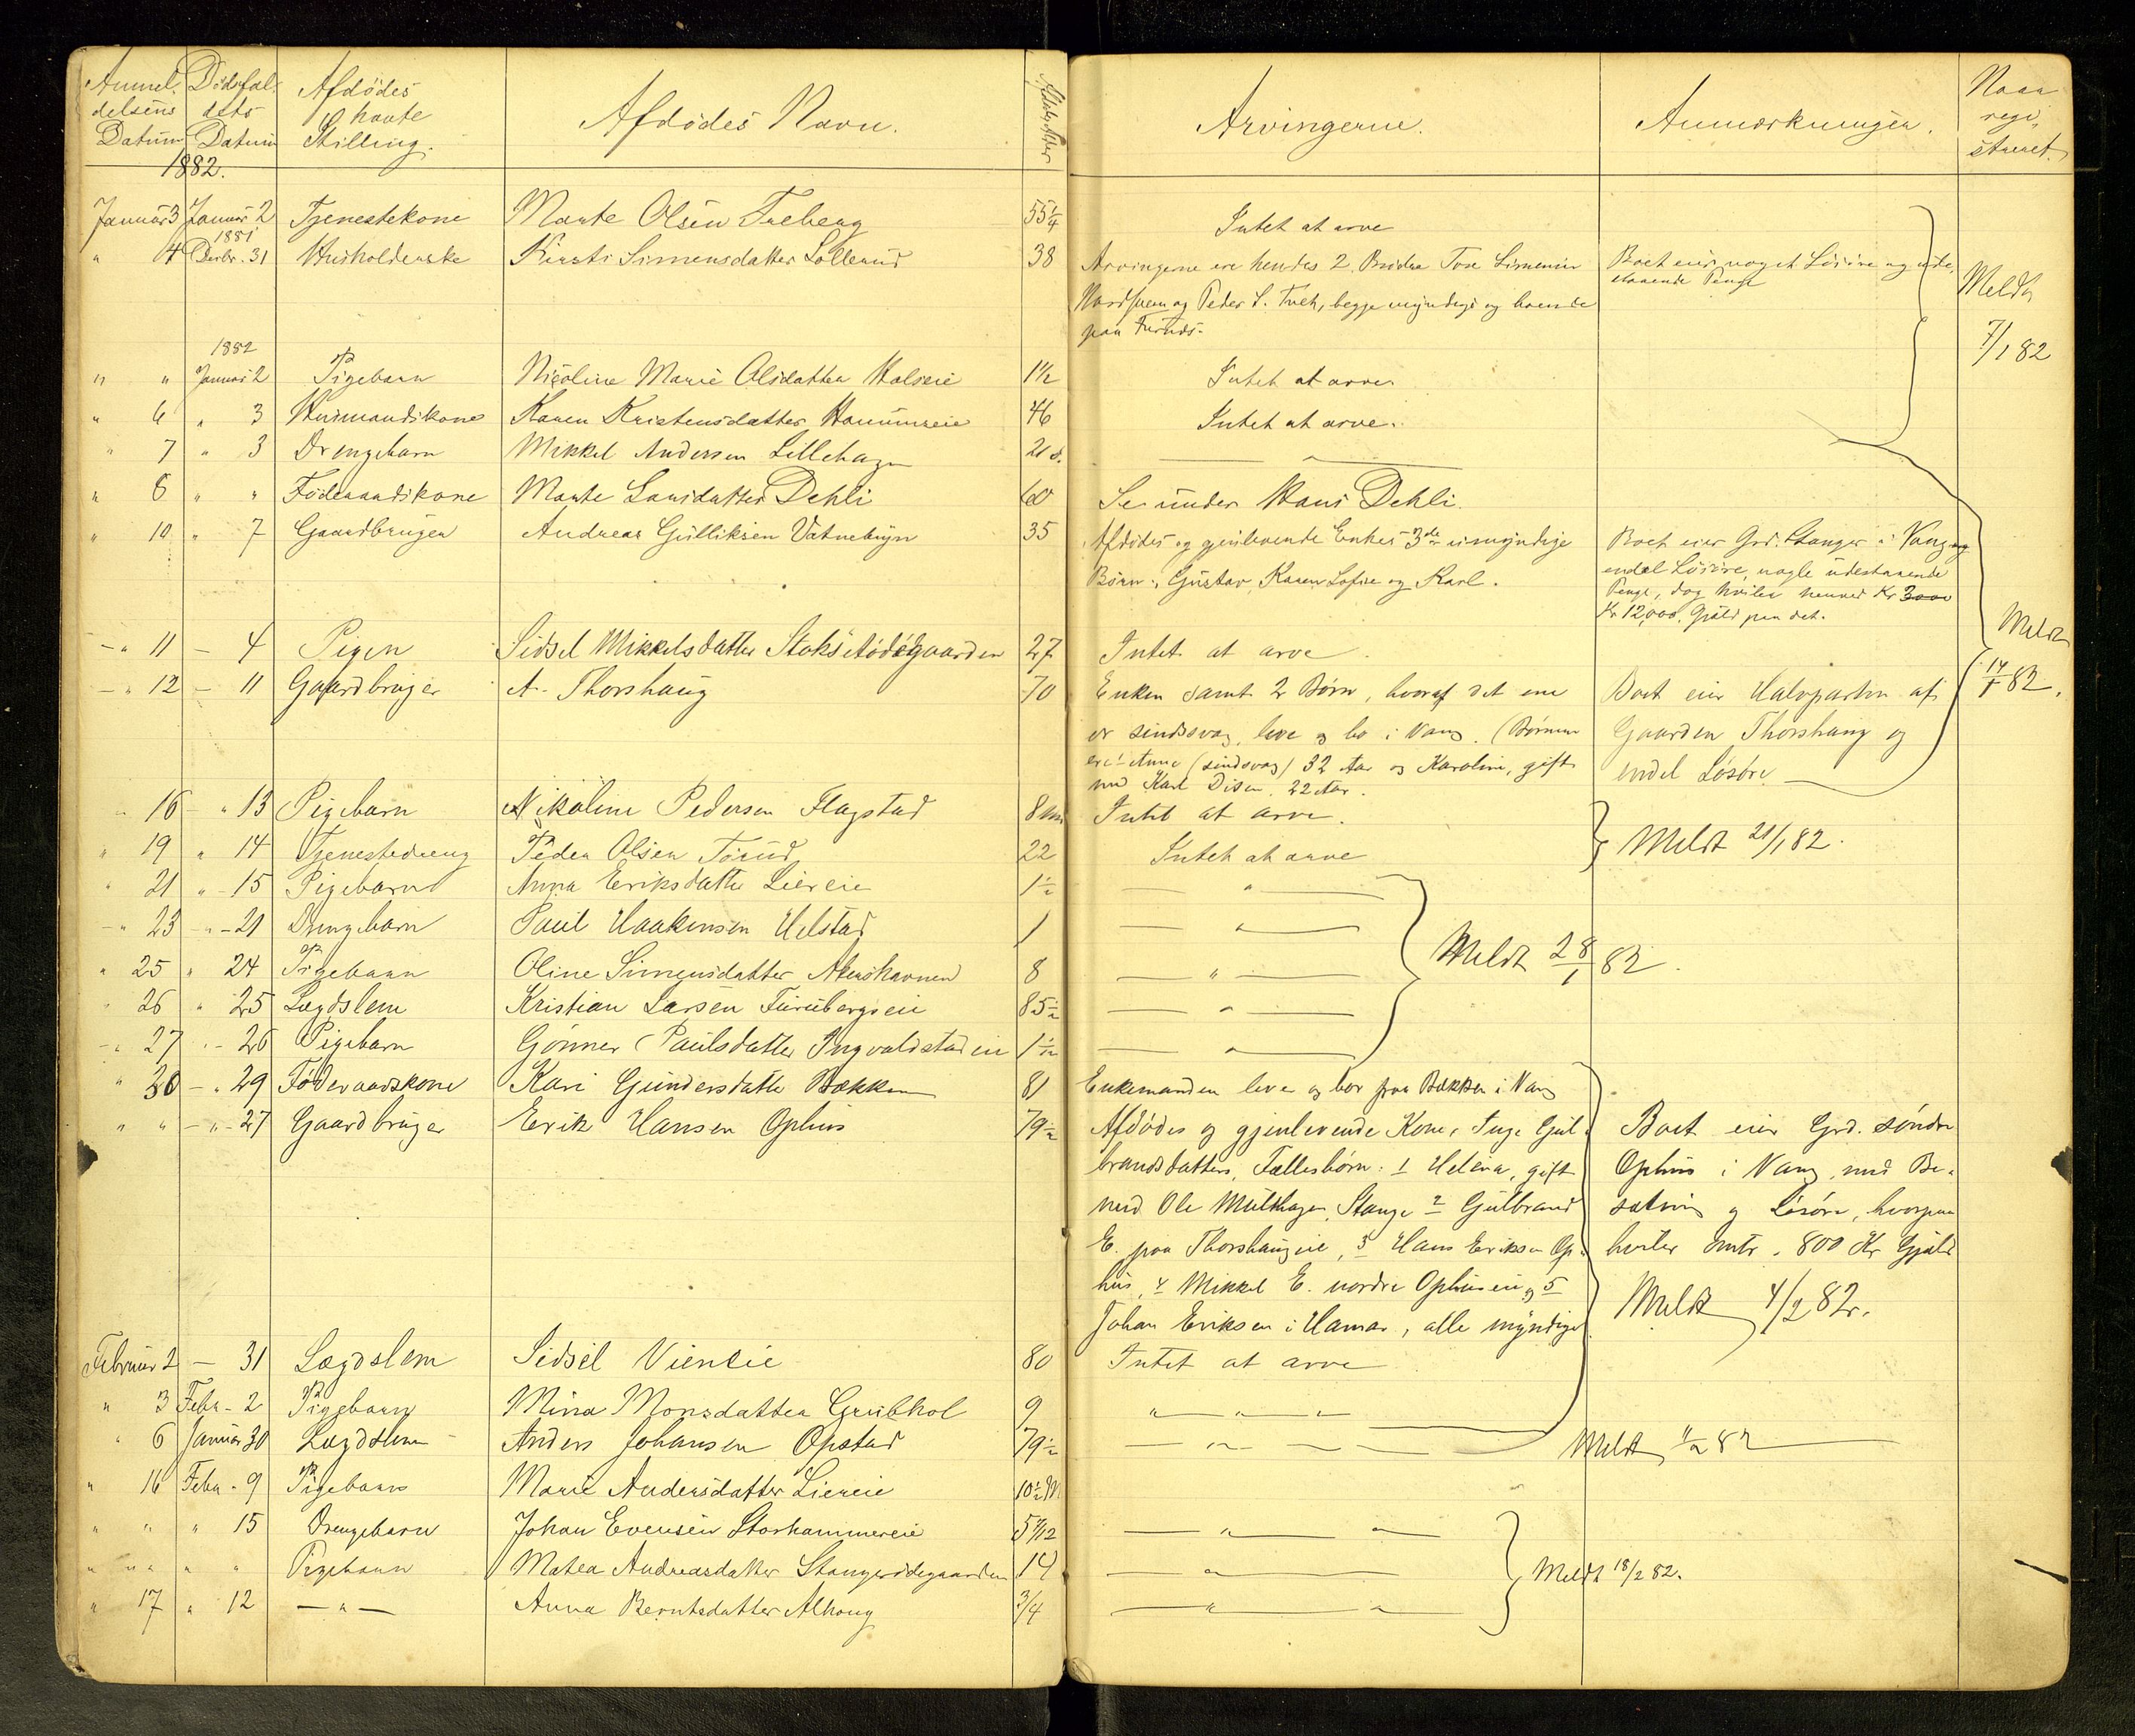 Anmel- Dødsfal- Afdødes
delsens dets havte
Datum Datum Stilling. Afdødes Navn. Alder Arvingerne. Anmærkninger. Naar regi- streret.
1882.
Januar 3 Januar 2 Tjenestekone Marte Olsen Freberg 55 1/4 Intet at arve
1881
" 4 Decbr. 31 Husholderske Kirsti Simensdatter Sollerud 38 Arvingerne ere hendes 2 Brødre Tore Simensen Boet eier noget Løsøre og ude-
staaende Penge Meldt
og Peder S. begge myndige og boende
paa Furnæs. 7/1 82
1882
" " Januar 2 Pigebarn Nicoline Marie Olsdatter Halseie 1 1/2 Intet at arve.
" 6 " 3 Husmandskone Karen Kristensdatter 46 Intet at arve.
" 7 " 3 Drengebarn Mikkel Andersen Lillehagen 21 d. — " —
" 8 " " Føderaadskone Marte Larsdatter Dehli 60 Se under Hans Dehli.
" 10 " 7 Gaardbruger Andreas Gulliksen Vatnebryn 35 Afdødes og gjenlevende Enkes 3de umyndige Boet eier Grd. Stanger i Vang og
Børn: Gustav, Karen Sofie og Karl. endel Løsøre, nogle udestaaende
Penge, dog hviler herved Kr 3000
Kr 12,000. Gjæld paa det.
— " 11 — 4 Pigen Sidsel Mikkelsdatter Stoksetødegaarden 27 Intet at arve. Meldt
— " 12 — 11 Gaardbruger A. Thorshaug 70 Enken samt 2 Børn, hvoraf det ene Boet eier Halvparten af 14/1 82.
er sindssvag, leve og bo i Vang. (Børnene Gaarden Thorshaug og
ere: Anne (sindsvag) 32 Aar og Karoline, gift endel Løsøre —
med Karl Disen, 22 Aar.
" 16 — " 13 Pigebarn Nikoline Pedersen Flagstad 8 mn Intet at arve.
" 19 " 14 Tjenestedreng Peder Olsen Torud 22 Intet at arve Meldt 21/1 82.
" 21 " 15 Pigebarn Anna Eriksdatter Liereie 1 1/2 — " —
— " 23 — " — 21 Drengebarn Paul Haakensen Helstad 1 — " —
" 25 " 24 Pigebarn Oline Simensdatter Akershavnen 8 — " — Meldt 28/1 82.
" 26 " 25 Lægdslem Kristian Larsen Furubergseie 85 1/2 — " —
— " 27 " — 26 Pigebarn Gønner Paulsdatter Ingvaldstadeie 1 1/12 — " —
" 30 — " 29 Føderaadskone Kari Gundersdatter Bækken 81 Enkemanden lever og bor paa Bækken i Vang
" " — " — 27 Gaardbruger Erik Hansen Ophus 79 1/2 Afdødes og gjenlevende Kone, Inge Gul- Boet eier Grd. søndre
brandsdatters, Fællesbørn: 1 Helena, gift Ophus i Vang, med Be-
med Ole Mulshagen, Stange 2 Gulbrand sætning og Løsøre, hvorpaa
E. paa Thorshaugeie, 3 Hans Eriksen Op- hviler omtr. 800 Kr Gjæld
hus, 4 Mikkel E. nordre Ophuseie og 5 Meldt 4/2 82.
Johan Eriksen i Hamar, alle myndige
Februar 2 — 31 Lægdslem Sidsel Vieneie 80 Intet at arve
" 3 Febr — 2 Pigebarn Mina Monsdatter Grubhol 9 " — " — " —
" 6 Januar 30 Lægdslem Anders Johansen Opstad 79 1/2 — " — Meldt 11/2 82
" 16 Febr — 9 Pigebarn Marie Andersdatter Liereie 10 1/2 M
" " " 15 Drengebarn Johan Evensen Storhammereie 5 7/12 — " — " —
" " " " Pigebarn Matea Andreasdatter Stangerødegaarden 14 — " — Meldt 18/2 82.
" 17 " 12 — " — Anna Berntsdatter Alhaug 3/4 — " — " —